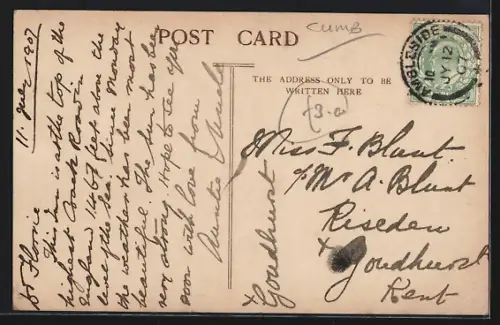 POST CARD
CUMB
THE ADDRESS ONLY TO BE
WRITTEN HERE
AMBLESIDE
JY 12
07
11. July 1907
Dr Florrie
This Inn is at the top of the
highest Coach Road in
England 1467 feet above the
level of the sea. Since Monday
the weather has been most
beautiful. The sun has been
very strong. Hope to see you
soon with love from
Auntie & Uncle
Miss F. Blunt.
c/o Mr A. Blunt
Riseden
x Goudhurst
Kent
x Goudhurst